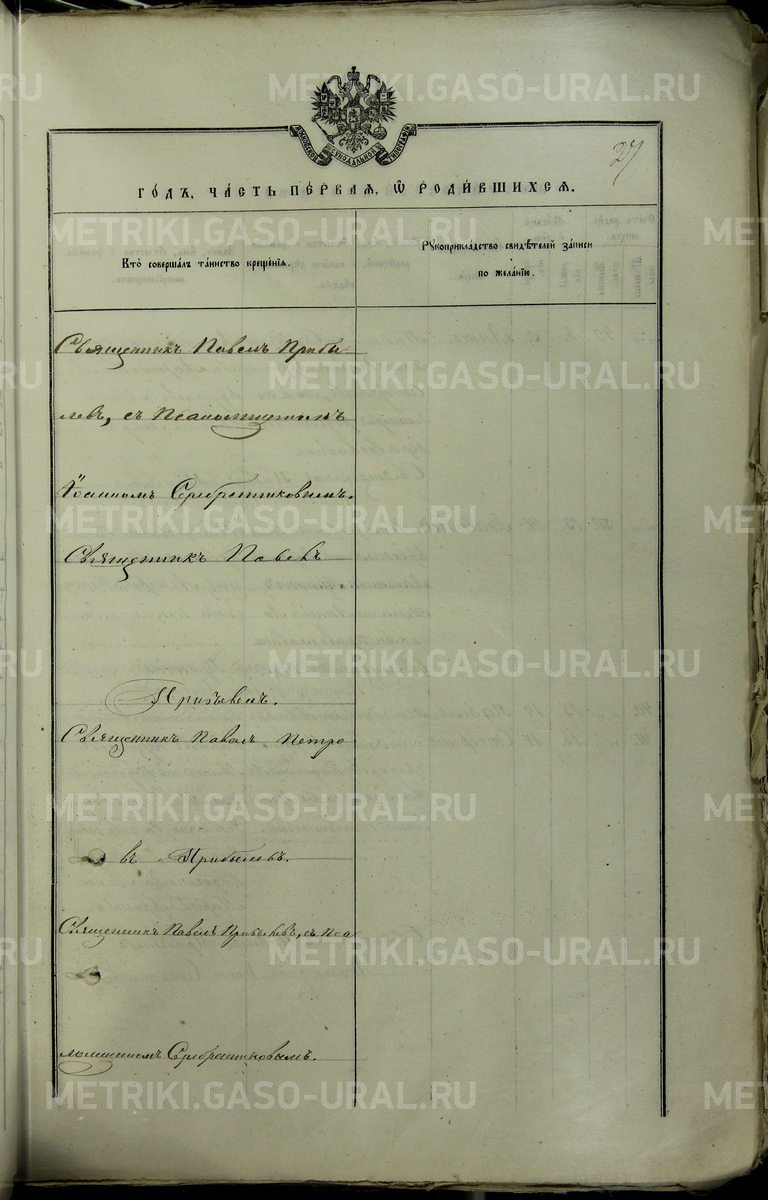 METRIKI.GASO-URAL.RU
МОСКОВСКОЙ СѴНОДАЛЬНОЙ ТИПОГРАФІИ
27
ГО́ДЪ, ЧА́СТЬ ПЕ́РВАЯ, Ѡ҆ РОДИ́ВШИХСЯ.
Кто̀ соверша́лъ та́инство креще́нїя.
Рꙋкоприкла́дство свидѣ́телей за́писи
по жела́нїю.
Священникъ Павелъ Прибы-
левъ, съ Псаломщикомъ
Іоанномъ Серебренниковымъ.
Священникъ Павелъ
Прибылевъ.
Священникъ Павелъ Петро
въ Прибылевъ.
Священникъ Павелъ Прибылевъ, съ Пса
ломщикомъ Серебренниковымъ.